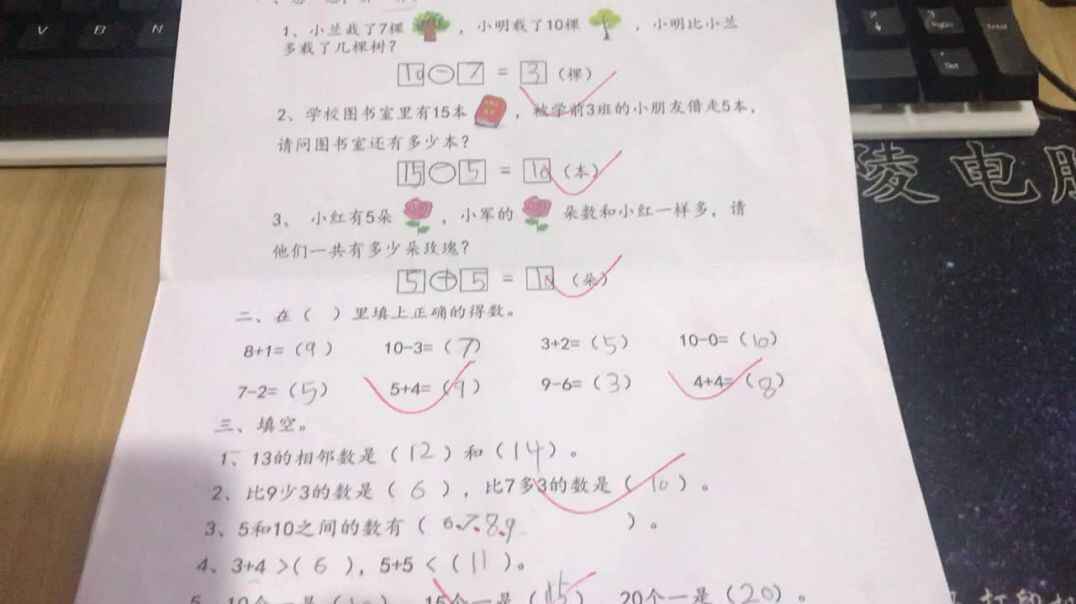 1、小兰栽了7棵，小明栽了10棵，小明比小兰
多栽了几棵树？
10－7＝3（棵）
2、学校图书室里有15本，被学前3班的小朋友借走5本，
请问图书室还有多少本？
15－5＝10（本）
3、小红有5朵，小军的朵数和小红一样多，请
他们一共有多少朵玫瑰？
5＋5＝10（朵）
二、在（ ）里填上正确的得数。
8+1=（9） 10-3=（7） 3+2=（5） 10-0=（10）
7-2=（5） 5+4=（9） 9-6=（3） 4+4=（8）
三、填空。
1、13的相邻数是（12）和（14）。
2、比9少3的数是（6），比7多3的数是（10）。
3、5和10之间的数有（6.7.8.9）。
4、3+4＞（6），5+5＜（11）。
5、10个一是（10） 15个一是（15） 20个一是（20）。
V B N
PgDn
End
Del
陵电脑
打印